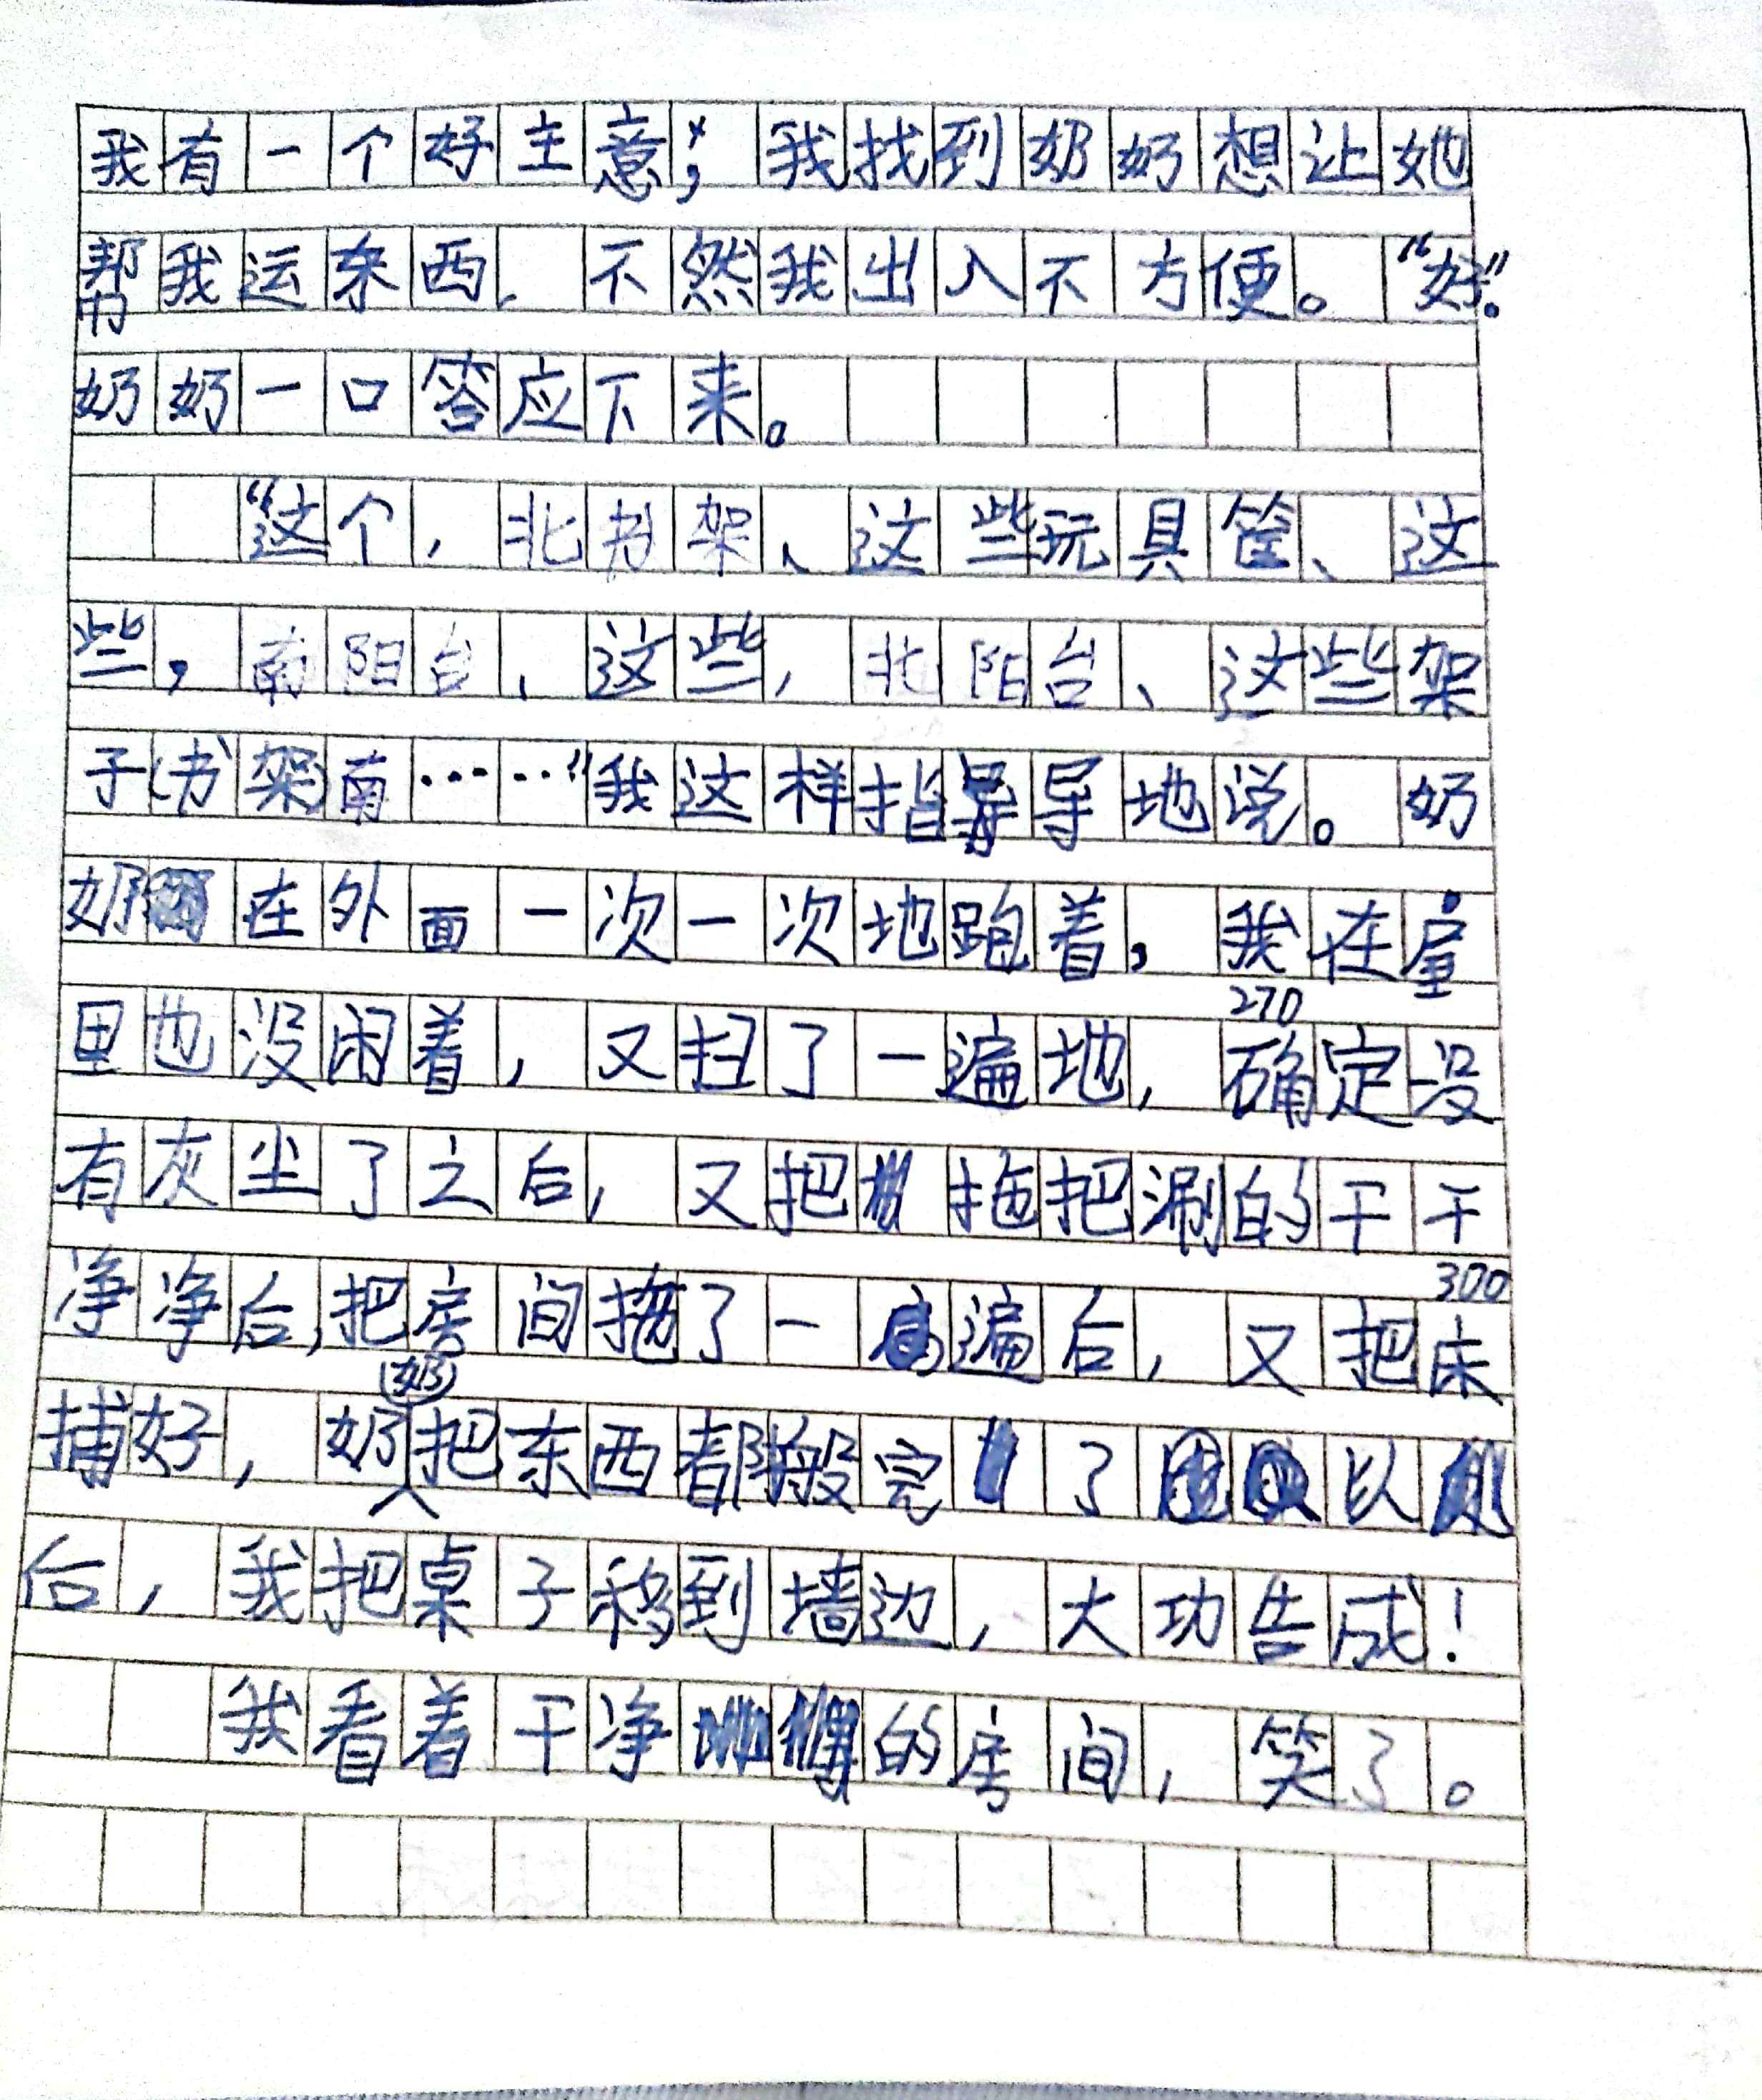 我有一个好主意；我找到奶奶想让她
帮我运东西，不然我出入不方便。“好。”
奶奶一口答应下来。
“这个，北书架、这些玩具筐、这
些，南阳台、这些，北阳台、这些架
子（书架）南……”我这样指导地说。奶
奶在外面一次一次地跑着，我在屋
270
里也没闲着，又扫了一遍地，确定没
有灰尘了之后，又把拖把涮的干干
300
净净后，把房间拖了一遍后，又把床
捕好，奶奶把东西都般完了以
后，我把桌子移到墙边，大功告成！
我看着干净的房间，笑了。